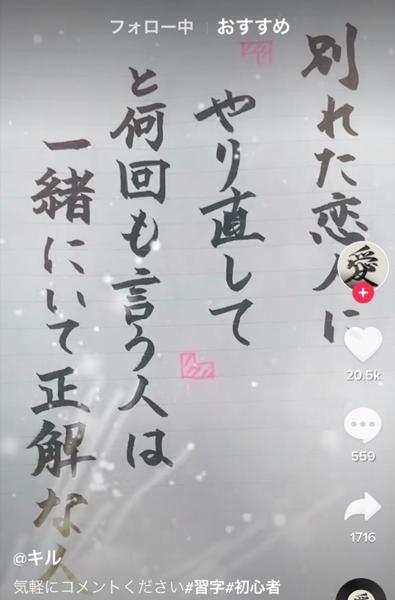 フォロー中 おすすめ
別れた恋人に
やり直して
と何回も言う人は
一緒にいて正解な人
愛
20.5k
559
1716
@キル
気軽にコメントください#習字#初心者